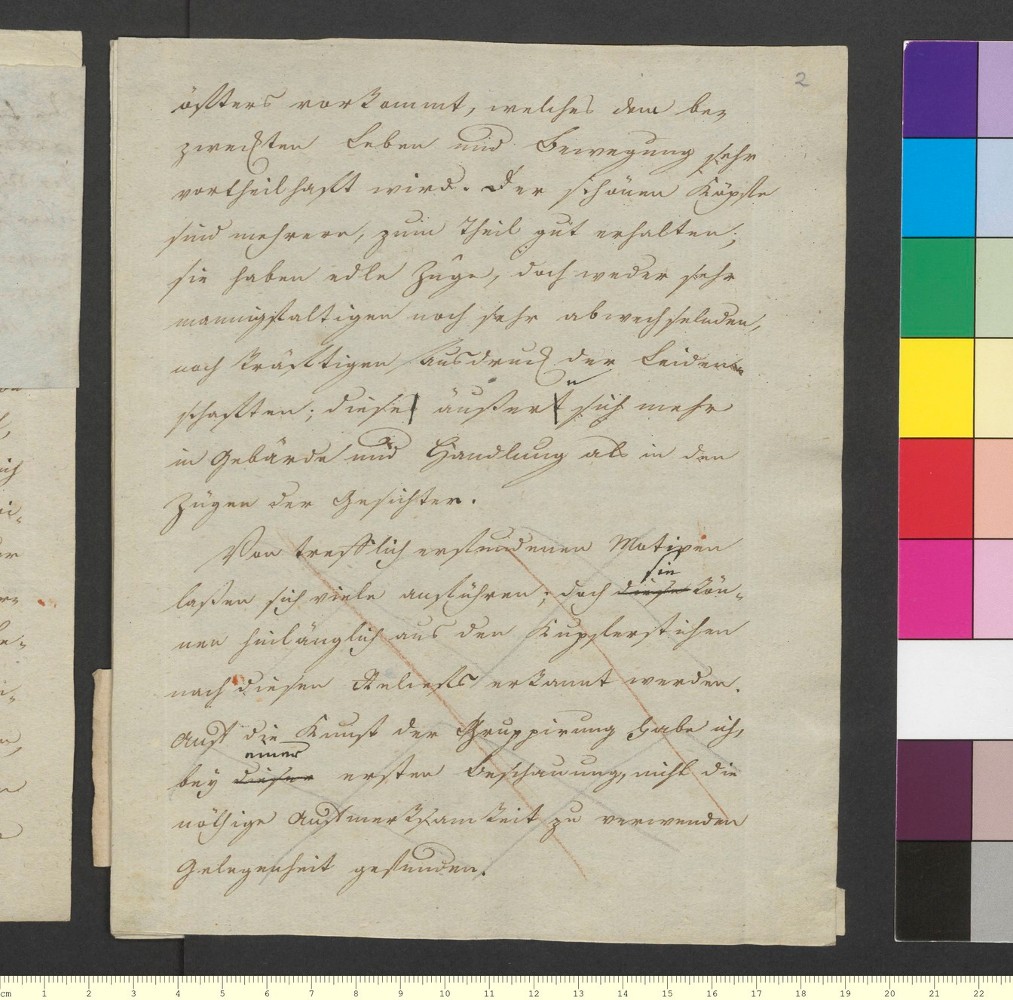 2
öfters vorkommt, welches dem be-
zweckten Leben und Bewegung sehr
vortheilhaft wird. Der schönen Köpfe
sind mehrere, zum Theil gut erhalten;
sie haben edle Züge, doch weder sehr
mannigfaltigen noch sehr abwechselnden,
noch kräftigen Ausdruck der Leiden-
schaften; diese äußern sich mehr
in Gebärde und Handlung als in den
Zügen der Gesichter.
Von trefflich erfundenen Motiven
sie
laßen sich viele anführen; doch diese kön-
nen hinlänglich aus den Kupferstichen
nach diesen Reliefs erkannt werden.
Auf die Kunst der Gruppirung habe ich,
einer
bey dieser ersten Beschauung, nicht die
nöthige Aufmerksamkeit zu verwenden
Gelegenheit gefunden.
cm 1 2 3 4 5 6 7 8 9 10 11 12 13 14 15 16 17 18 19 20 21 22